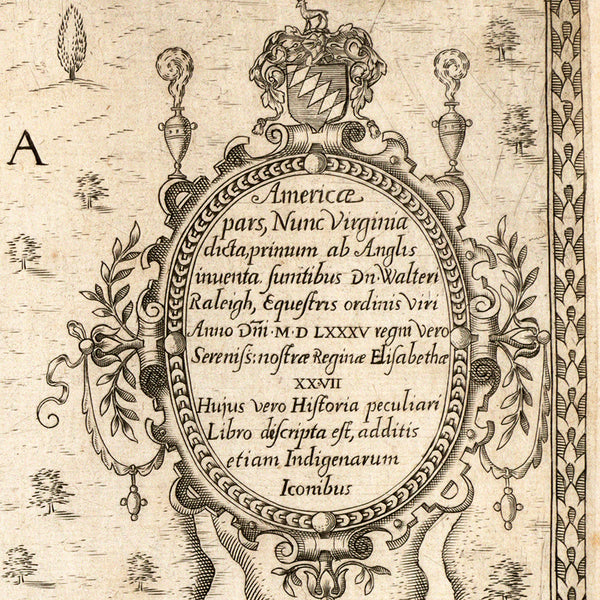 A
Americæ
pars, Nunc Virginia
dicta, primum ab Anglis
inuenta. sumtibus Dn. Walteri
Raleigh, Equestris ordinis Viri
Anno Dñi. M. D LXXXV regni Vero
Sereniss: nostræ Reginæ Elisabethæ
XXVII
Hujus vero Historia peculiari
Libro descripta est, additis
etiam Indigenarum
Iconibus